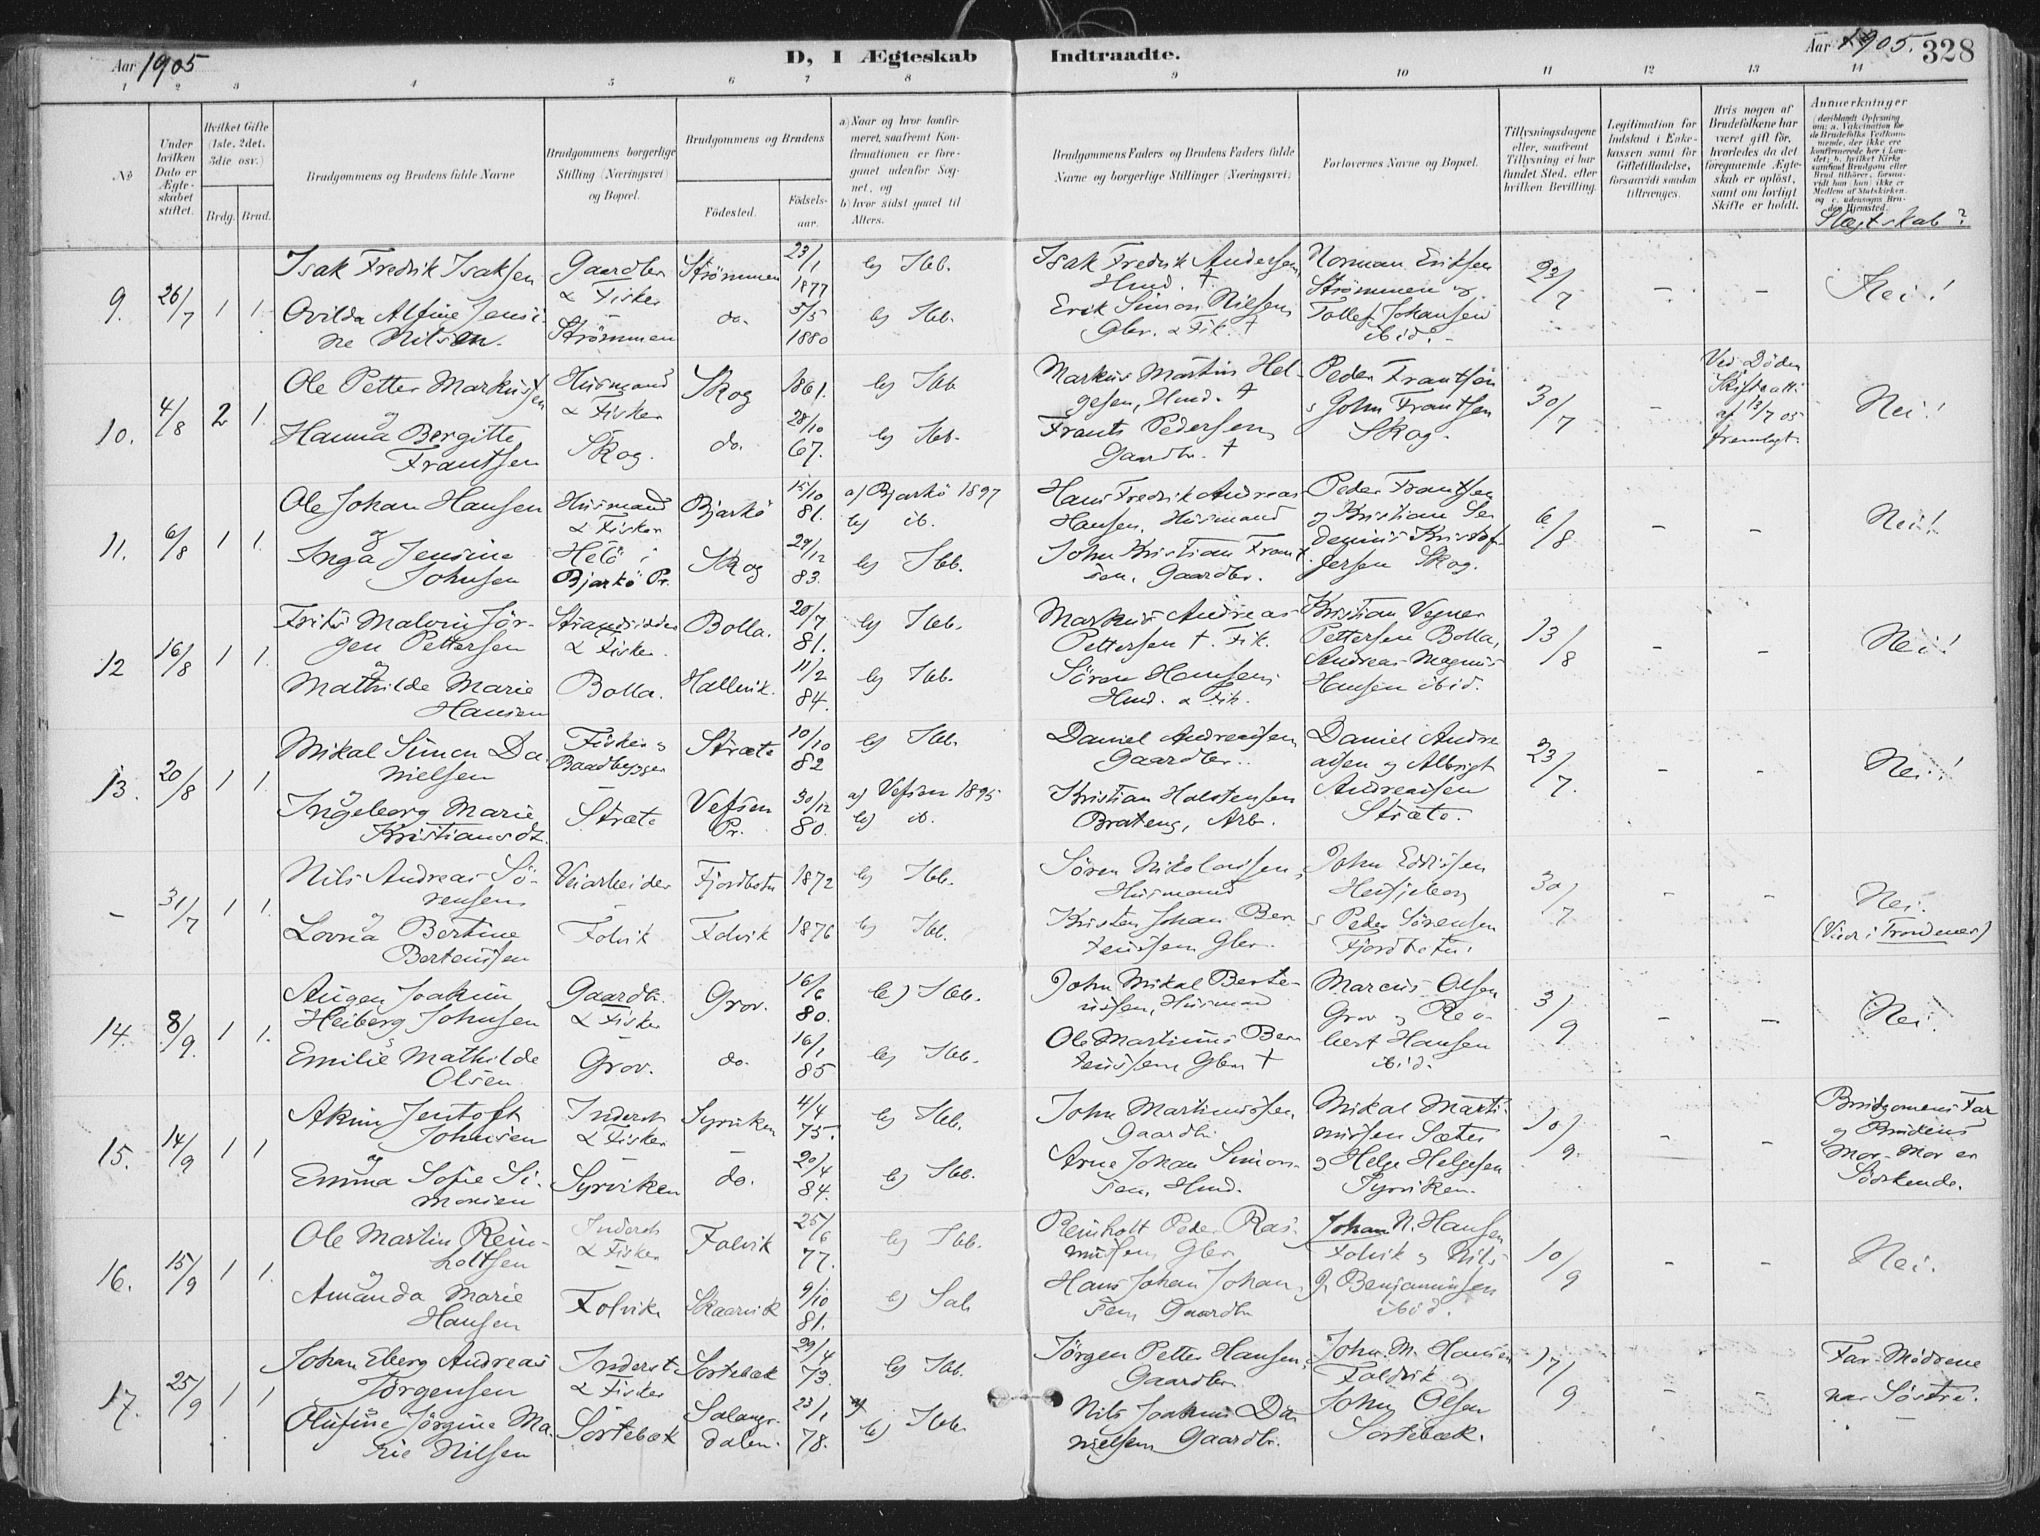 Aar 1905
D, I Ægteskab Indtraadte.
Aar 1905. 328
1 2 3 4 5 6 7 8 9 10 11 12 13 14
No
Under hvilken Dato er Ægteskabet stiftet.
Hvilket Gifte (1ste, 2det, 3die osv.)
Brdg. Brud.
Brudgommens og Brudens fulde Navne
Brudgommens borgerlige Stilling (Næringsvei) og Bopæl.
Brudgommens og Brudens
Födested. Födselsaar.
a) Naar og hvor konfirmeret, saafremt Konfirmationen er foregaaet udenfor Sognet, og
b) hvor sidst gaaet til Alters.
Brudgommens Faders og Brudens Faders fulde Navne og borgerlige Stillinger (Næringsvei)
Forlovernes Navne og Bopæl.
Tillysningsdagene eller, saafremt Tillysning ei har fundet Sted, efter hvilken Bevilling.
Legitimation for Indskud i Enkekassen samt for Giftetilladelse, forsaavidt saadan tiltrænges.
Hvis nogen af Brudefolkene har været gift før, hvorledes da det foregaaende Ægteskab er opløst, samt om lovligt Skifte er holdt.
Anmerkninger
Slægtskab?
9. 26/7 1 1.
Isak Fredrik Isaksen
Ovilda Alfine Jensine Nilsen.
Gaardbr & Fisker
Strömmen
Strömmen 23/1 1877
do. 5/5 1880
b) Ibb.
b) Ibb.
Isak Fredrik Andersen, Hmd. †
Erik Simon Nilsen Gbr. & Fik. †
Norman Eriksen Strömmen og Tollef Johansen ibid.
23/7 - - Nei!
10. 4/8 2 1.
Ole Petter Markussen
og
Hanna Bergitte Frantsen
Husmand & Fisker
Skog.
Skog 1861.
do. 28/10 67.
b) Ibb
b) Ibb.
Markus Martin Helgesen, Hmd. †
Frants Pedersen Gaardbr. †
Peder Frantsen
s John Frantsen Skog.
30/7 -
Ved Döden Skifteatt. af 13/7 05 fremlagt.
Nei!
11. 6/8 1 1.
Ole Johan Hansen
og
Inga Jensine Johnsen
Husmand & Fisker
Helö i Bjarkö Pr.
Bjarkö 15/10 81.
Skog 29/12 83.
a) Bjarkö 1897
b) ib.
b) Ibb.
Hans Fredrik Andreas Hansen, Husmand
John Kristian Frantsen, Gaardbr.
Peder Frantsen og Kristian Skog.
6/8 - - Nei!
12 16/8 1 1.
Frits Malvin Jörgen Pettersen
og
Mathilde Marie Hansen
Strandsidder & Fisker.
Bolla.
Bolla. 20/7 81.
Hallevik. 11/2 84.
b) Ibb.
b) Ibb.
Markus Andreas Pettersen †. Fik.
Sören Hansen Hmd. & Fik.
Kristian Vegner Pettersen Bolla,
Andreas Magnus Hansen ibid.
13/8 - - Nei!
13. 20/8 1 1.
Mikal Simon Danielsen
og
Ingeborg Marie Kristiansdt.
Fisker og Baadbygger
Stræte
Stræte 10/10 82
Vefsen Pr. 30/12 80.
b) Ibb.
a) Vefsen 1895
b) ib.
Daniel Andreassen, Gaardbr.
Kristian Halstensen Brateng, Arb.
Daniel Andreassen og Albrigt Andreassen Stræte.
23/7. - - Nei!
- 31/7 1 1.
Nils Andreas Sörensen
og
Lovna Bertine Bertenssen
Veiarbeider
Folvik
Fjordbotn 1872
Folvik 1876
b) Ibb.
b) Ibb.
Sören Nikolaissen, Husmand
Kristen Johan Bertenssen Gbr.
John
s Peder Sörensen Fjordbotn.
30/7 - - Nei.
(Viede i Trondenes)
14. 8/9. 1 1.
Augen Joakim Heiberg Johnsen
og
Emilie Mathilde Olsen
Gaardbr. & Fisker
Grov.
Grov. 16/6 80.
do. 16/1 85
b) Ibb.
b) Ibb.
John Mikal Bertenssen, Husmand
Ole Martinus Bertenssen Gbr †
Marcus Olsen Grov og Robert Hansen ibid.
3/9 - - Nei.
15. 14/9 1 1
Akim Jentoft Johnsen
og
Emma Sofie Simonsen
Inderst & Fisker
Syrviken
Syrviken 4/4 75.
do. 20/4 84.
b) Ibb.
b) Ibb.
John Martinussen, Gaardbr.
Arne Johan Simonsen, Hmd.
Mikal Martinussen Sæter og Helge Helgesen Syrviken.
10/9. - -
Brudgomens Far og Brudens Mor-Mor er Söskende.
16. 15/9 1 1.
Ole Martin Reinholtsen
og
Amanda Marie Hansen
Inderst & Fisker
Folvik
Folvik 25/6 77.
Skaarvik 9/10 81.
b) Ibb.
b) Sal.
Reinholt Peder Rasmussen, Gbr
Hans Johan Johansen Gaardbr
Johan N. Hansen Folvik og Nils J. Benjaminsen ibid.
10/9 - - Nei.
17. 25/9 1 1
Johan Eberg Andreas Jörgensen
Olufine Jörgine Marie Nilsen
Inderst & Fisker
Sortebæk
Sortebæk 29/4 73.
Salangsdalen. 23/1 78.
b) Ibb.
b) Ibb.
Jörgen Petter Hansen, Gaardbr.
Nils Joakim Danielsen Gaardbr.
John M. Hansen Foldvik og John Olsen Sortebæk.
17/9 - -
Far-Mödrene var Söstre.